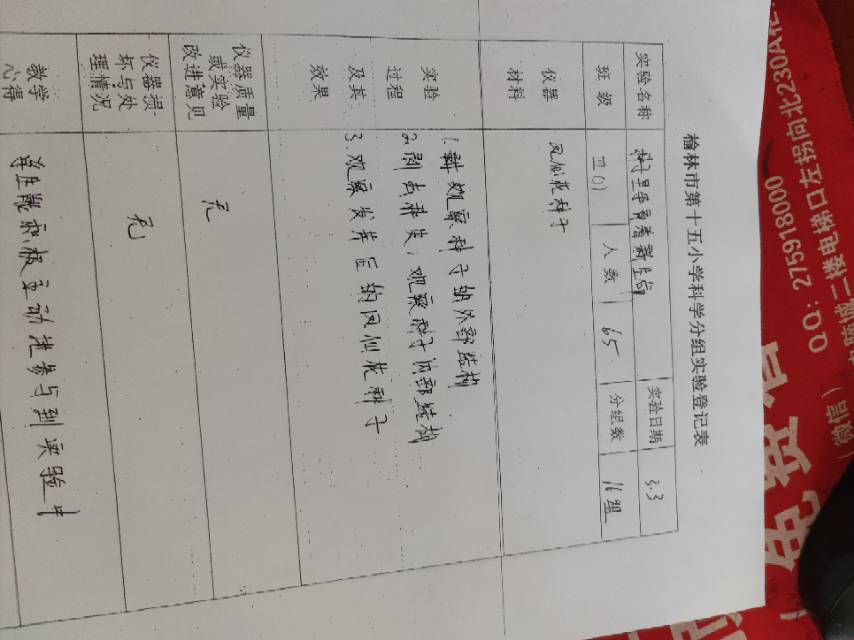 榆林市第十五小学科学分组实验登记表
实验名称 种子里孕育着新生命 实验日期 3.3
班级 四(1) 人数 65 分组数 16组
仪器
材料
凤仙花种子
实验
过程
及其
效果
1. 观察种子的外部结构
2. 剥去种皮，观察种子内部结构
3. 观察发芽后的凤仙花种子
仪器质量
或实验
改进意见
无
仪器损
坏与处
理情况
无
教学
心得
学生能积极主动地参与到实验中
QQ：275918000
二楼电梯口左拐向北230A花
（微信）
免费